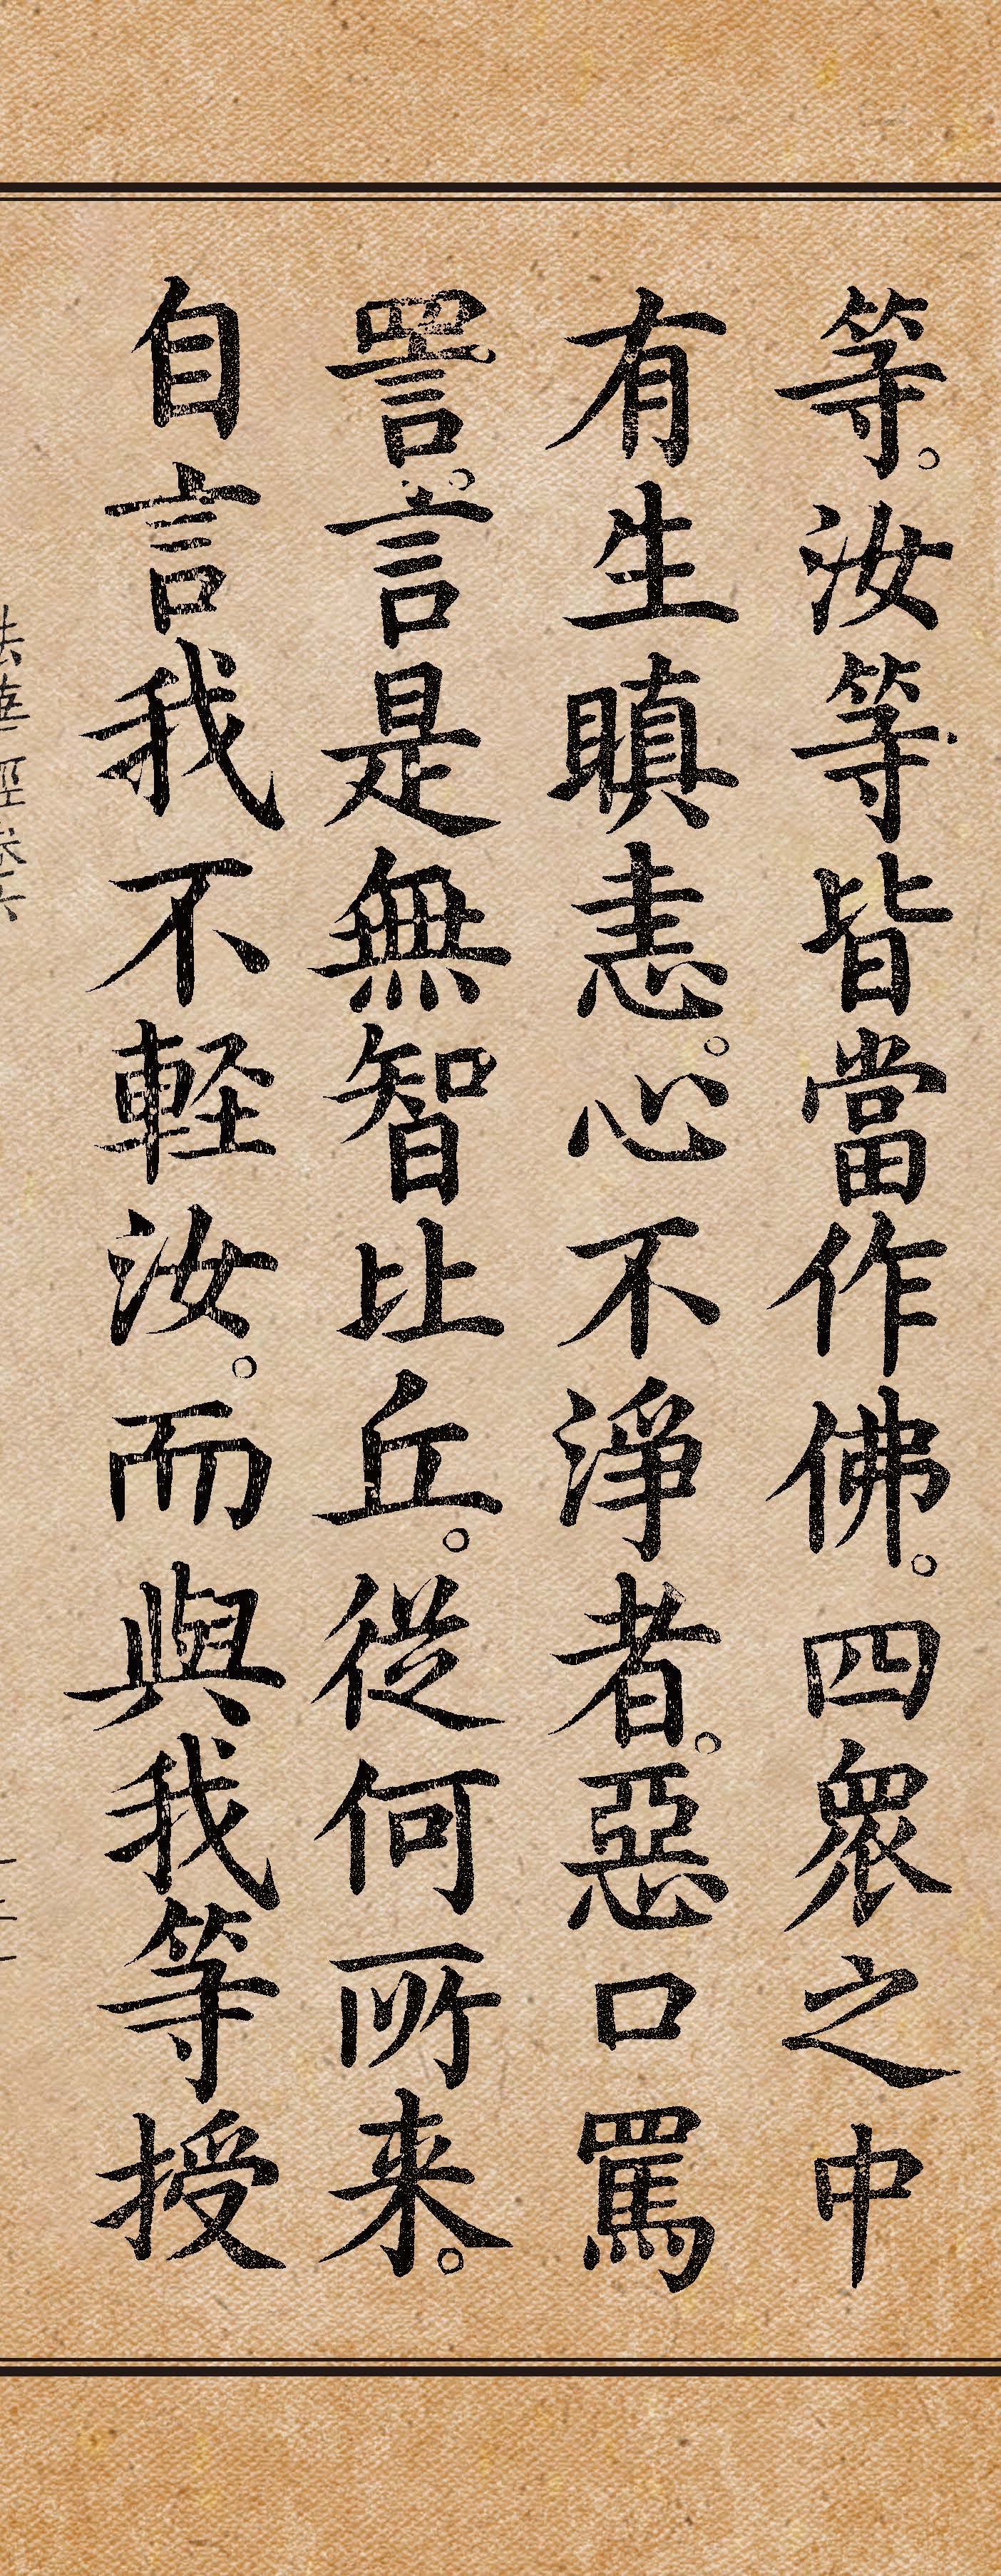 等。汝等皆當作佛。四衆之中
有生瞋恚。心不淨者。惡口罵
詈。言是無智比丘。從何所来。
自言我不軽汝。而與我等授
法華経巻六